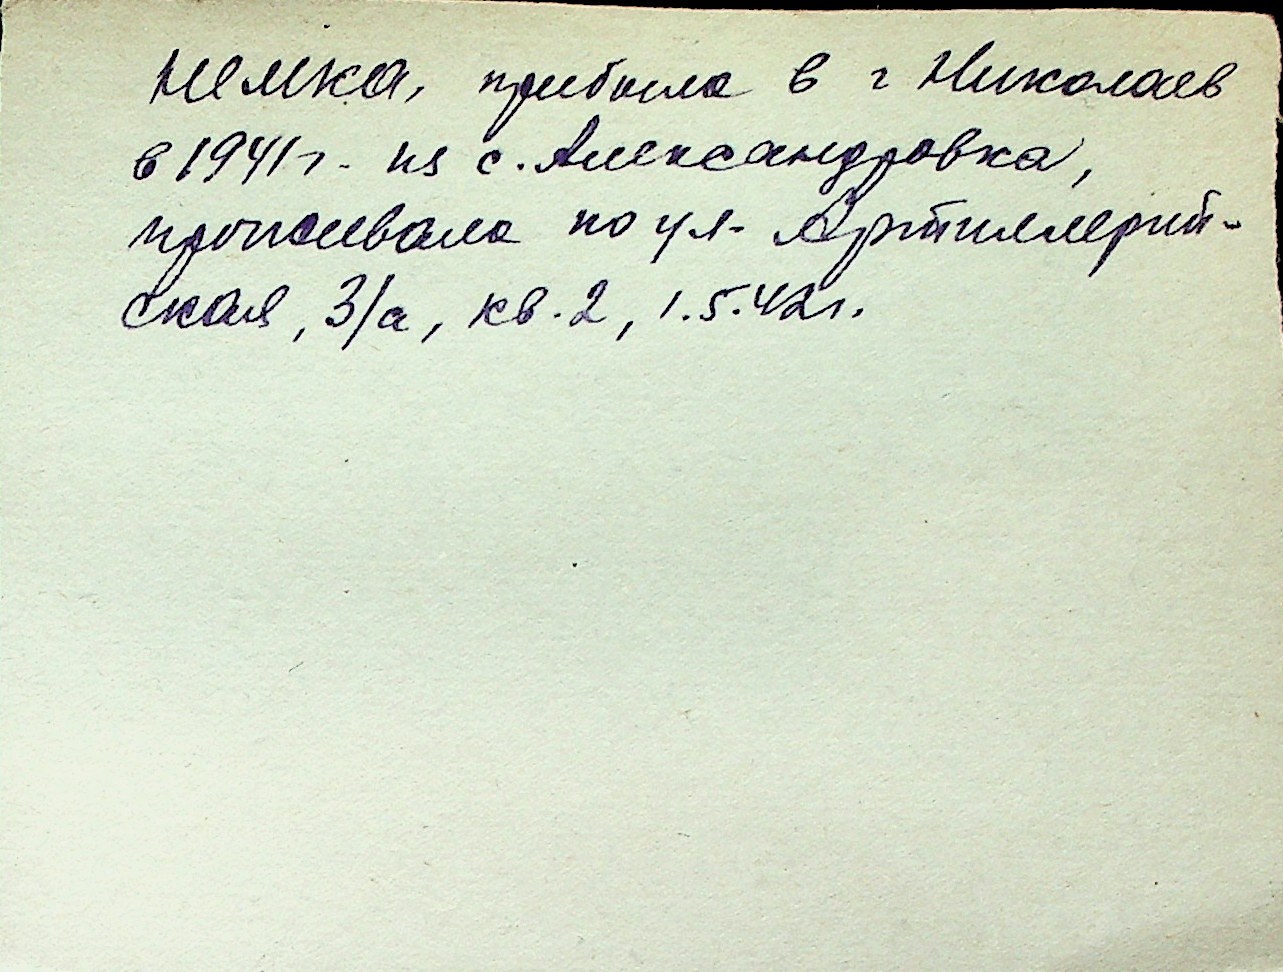 немка, прибыла в г Николаев
в 1941г. из с. Александровка,
проживала по ул. Артиллерий-
ская, 3/а, кв. 2, 1.5.42г.